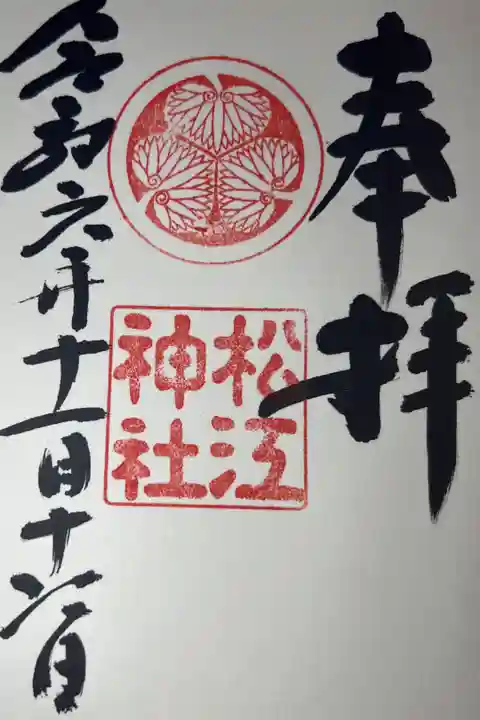 奉拝
松江
神社
令和六年十一月十六日